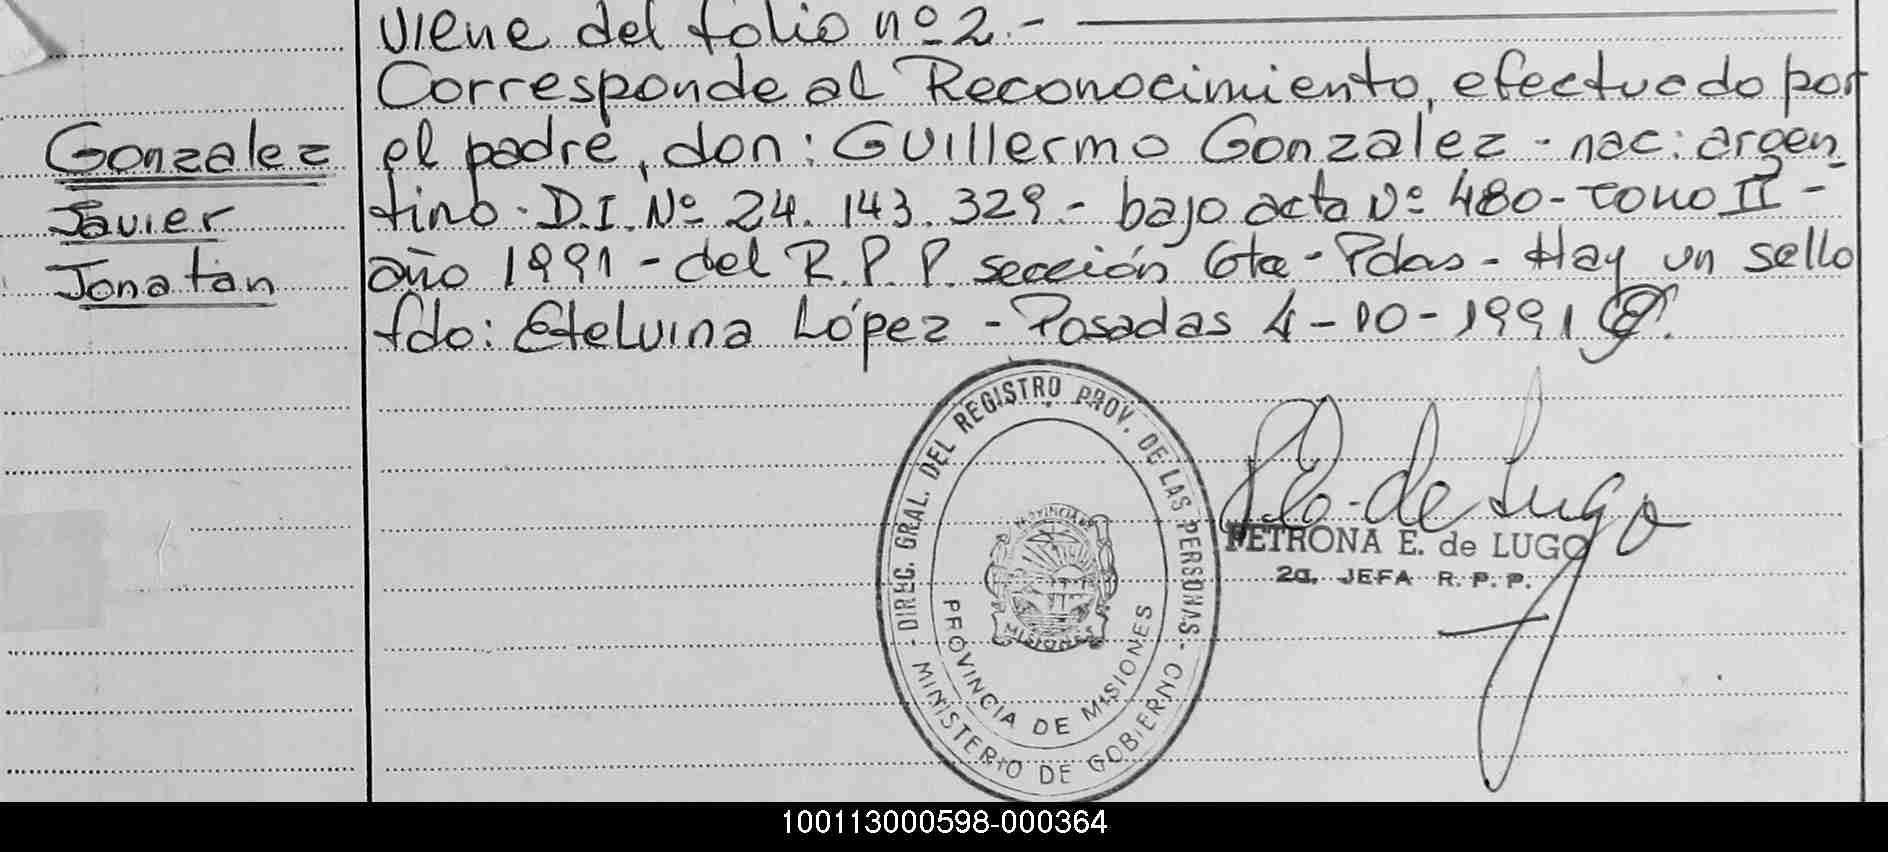 viene del folio nº 2.-
Corresponde al Reconocimiento, efectuado por
el padre, don: Guillermo Gonzalez - nac: argen_
tino. D.I. Nº 24.143.329.- bajo acta Nº 480- tomo II -
año 1991 - del R.P.P. sección 6ta - Pdas - Hay un sello
fdo: Etelvina López - Posadas 4-10-1991
Gonzalez
Javier
Jonatan
DIREC. GRAL. DEL REGISTRO PROV. DE LAS PERSONAS
MINISTERIO DE GOBIERNO
PROVINCIA DE MISIONES
PROVINCIA DE
MISIONES
de Lugo
PETRONA E. de LUGO
2a. JEFA R.P.P.
100113000598-000364